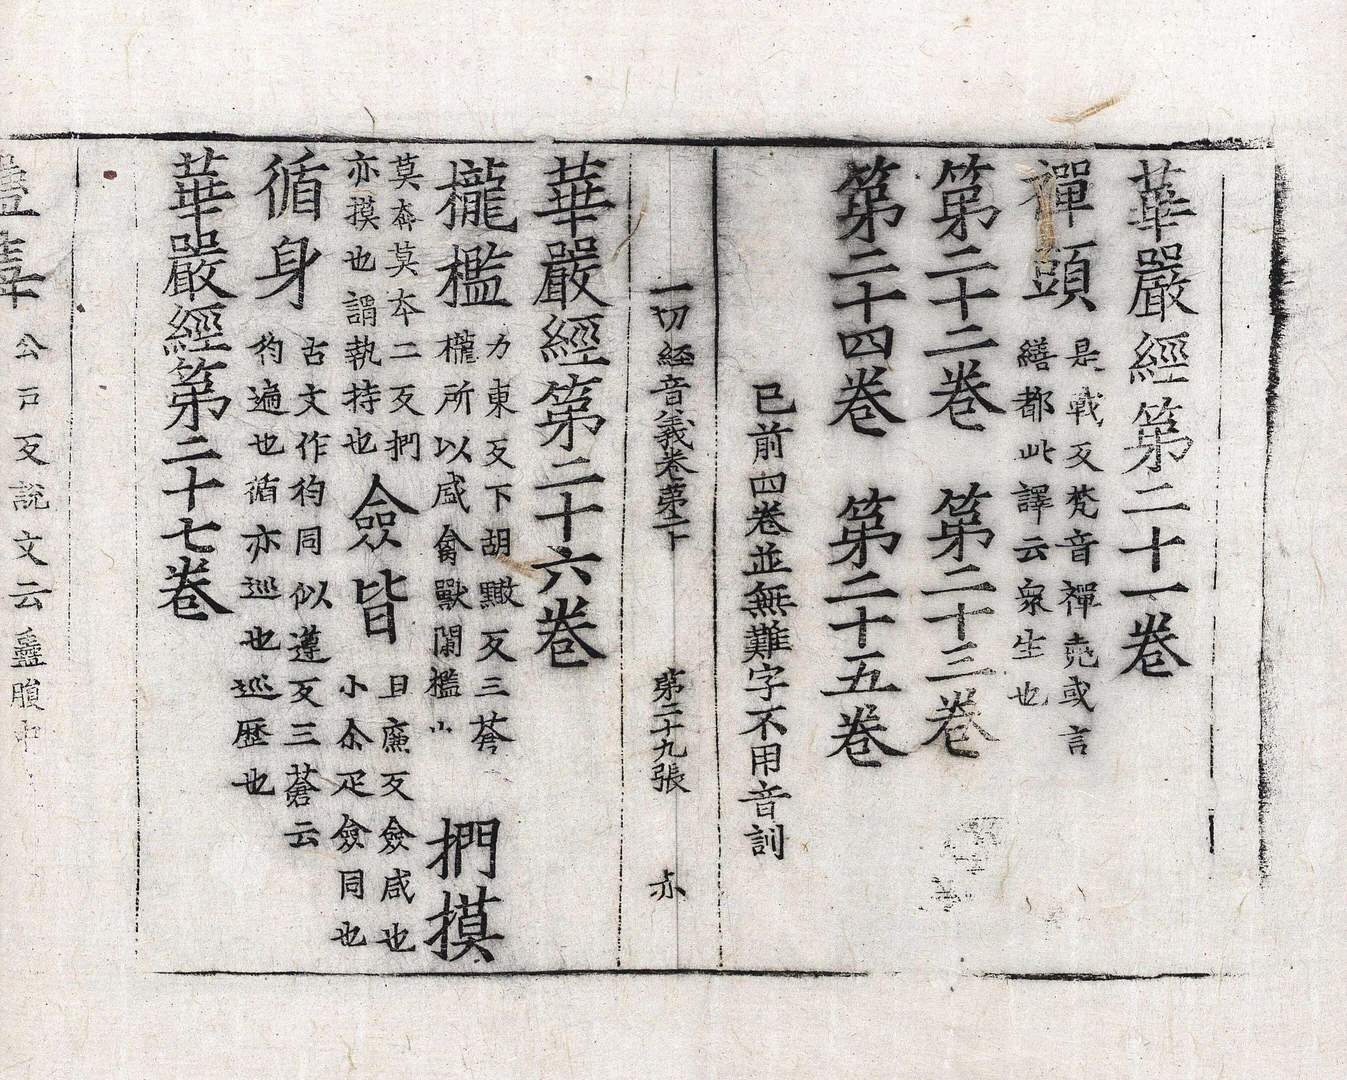 華嚴經第二十一卷
禪頭 是戰反梵音禪䔲或言
繕都此譯云衆生也
第二十二卷 第二十三卷
第二十四卷 第二十五卷
已前四卷並無難字不用音訓
一切經音義卷第二十 第二十九張 赤
華嚴經第二十六卷
攏檻 力東反下胡黤反三蒼
櫳所以盛禽獸闌檻也 捫摸
莫奔莫本二反捫
亦摸也謂執持也 僉皆 且廉反僉咸也
小尒疋僉同也
循身 古文作徇同似遵反三蒼云
徇遍也循亦巡也巡歷也
華嚴經第二十七卷
公戶反說文云蠱腹中